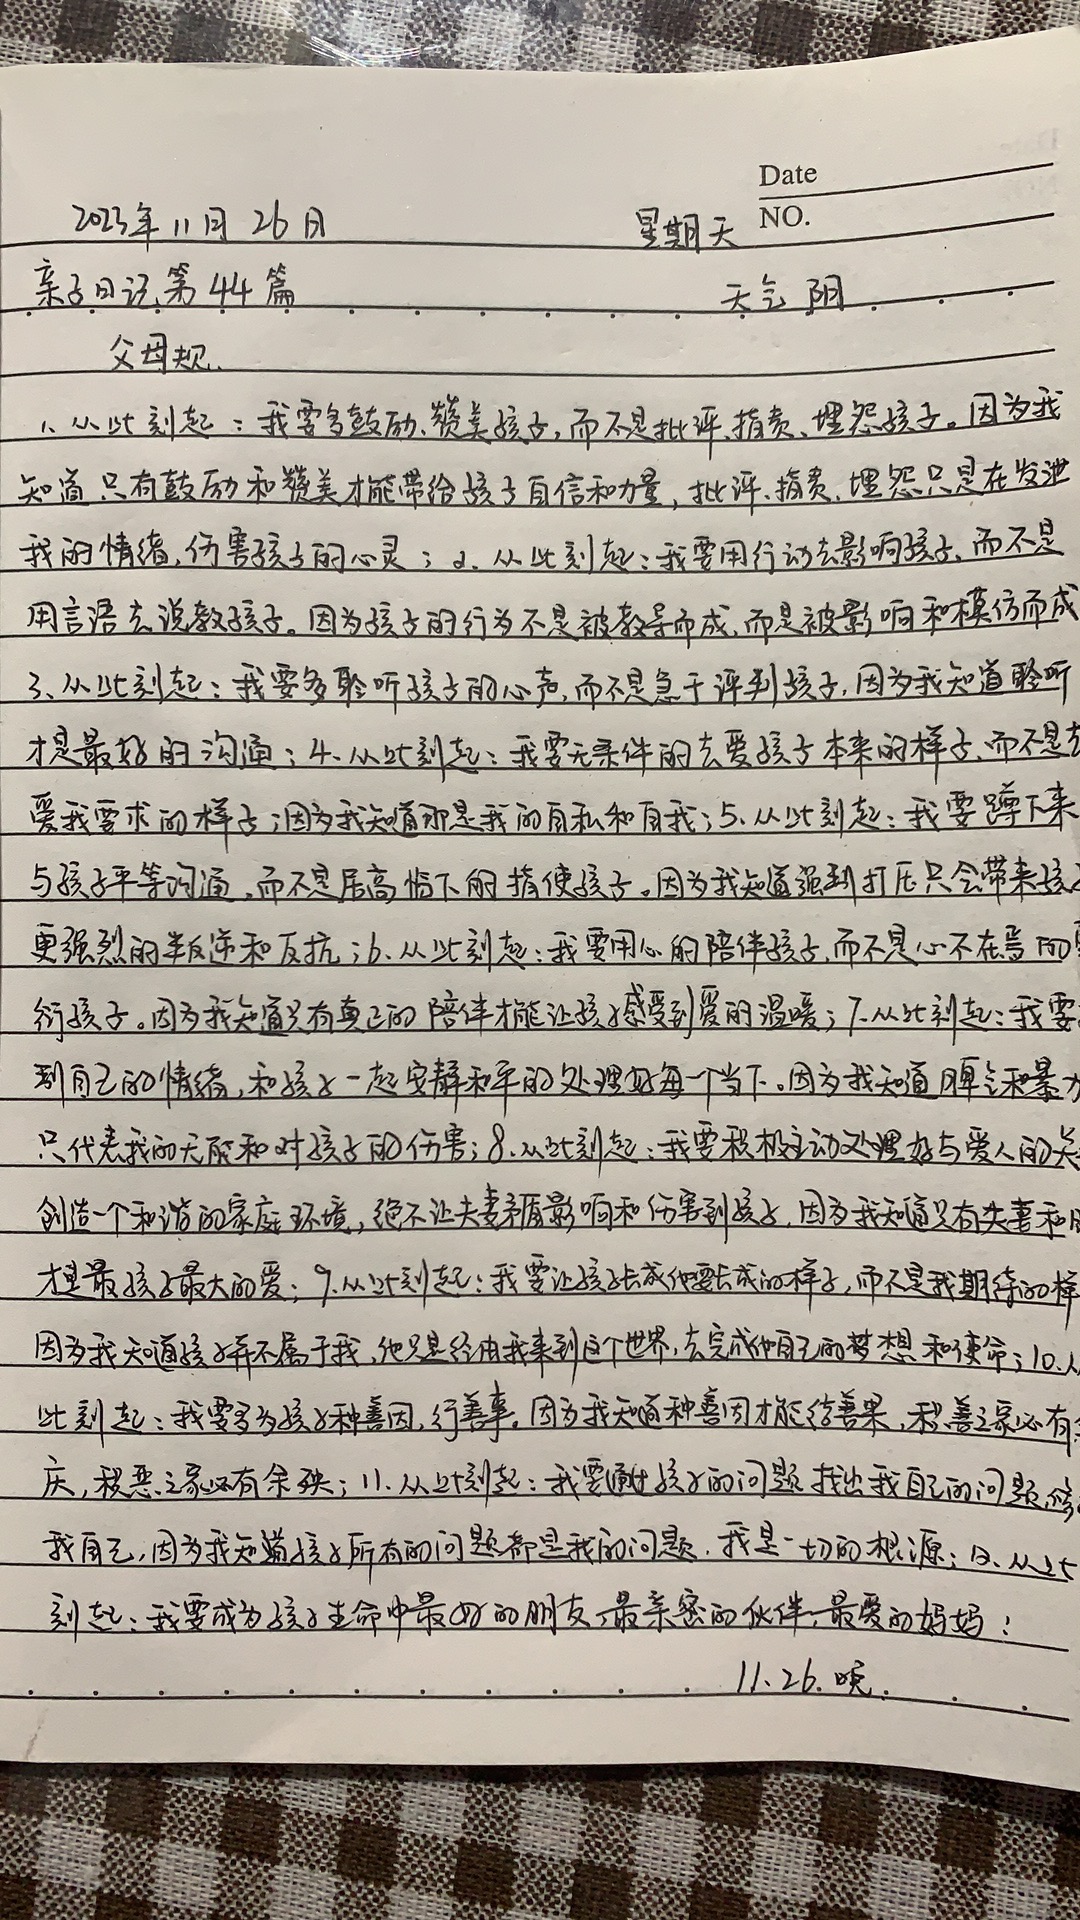 Date
2023年11月26日 星期天 NO.
亲子日记第44篇 天气 阴
父母规
1、从此刻起：我要多鼓励、赞美孩子，而不是批评、指责、埋怨孩子。因为我
知道只有鼓励和赞美才能带给孩子自信和力量，批评、指责、埋怨只是在发泄
我的情绪，伤害孩子的心灵；2、从此刻起：我要用行动去影响孩子，而不是
用言语去说教孩子。因为孩子的行为不是被教导而成，而是被影响和模仿而成
3、从此刻起：我要多聆听孩子的心声，而不是急于评判孩子，因为我知道聆听
才是最好的沟通；4、从此刻起：我要无条件的去爱孩子本来的样子，而不是去
爱我要求的样子；因为我知道那是我的自私和自我；5、从此刻起：我要蹲下来
与孩子平等沟通，而不是居高临下的指使孩子。因为我知道强制打压只会带来孩子
更强烈的叛逆和反抗；6、从此刻起：我要用心的陪伴孩子，而不是心不在焉的
衍孩子。因为我知道只有真正的陪伴才能让孩子感受到爱的温暖；7、从此刻起：我要
到自己的情绪，和孩子一起安静和平的处理好每一个当下。因为我知道脾气和暴力
只代表我的无能和对孩子的伤害；8、从此刻起：我要积极主动处理好与爱人的关
创造一个和谐的家庭环境，绝不让夫妻矛盾影响和伤害到孩子，因为我知道只有夫妻和
才是最孩子最大的爱；9、从此刻起：我要让孩子长成他要长成的样子，而不是我期待的样
因为我知道孩子并不属于我，他只是经由我来到这个世界，去完成他自己的梦想和使命；10、从
此刻起：我要多为孩子种善因，行善事。因为我知道种善因才能结善果，积善之家必有
庆，积恶之家必有余殃；11、从此刻起：我要通过孩子的问题找出我自己的问题，修
我自己，因为我知道孩子所有的问题都是我的问题，我是一切的根源；12、从此
刻起：我要成为孩子生命中最好的朋友、最亲密的伙伴、最爱的妈妈！
11.26.晚.